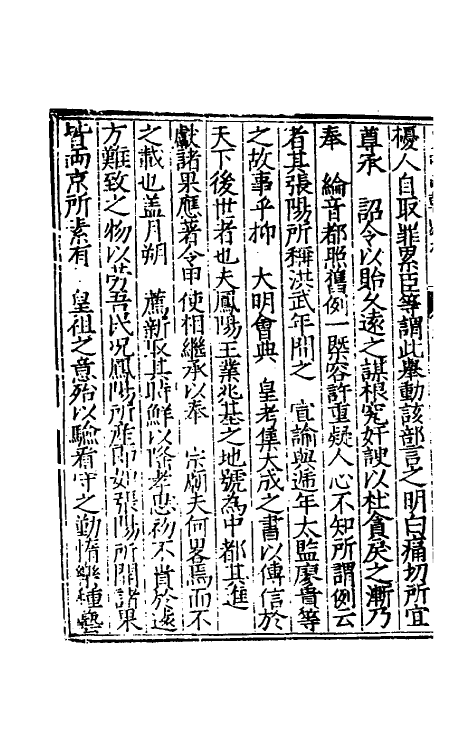 擾人自取罪累臣等謂此舉動該部言之明白痛切所宜
尊承　詔令以貽久遠之謀根究奸諛以杜貪戾之漸乃
奉　綸音都照舊例一槩容許重疑人心不知所謂例云
者其張陽所稱洪武年間之　宣諭與逓年太監廖貴等
之故事乎抑　大明會典　皇考集大成之書以傳信於
天下後世者也夫鳳陽王業兆基之地號為中都其進
獻諸果應著令甲使相繼承以奉　宗廟夫何畧焉而不
之載也盖月朔　薦新取其時鮮以隆孝思初不貴於遠
方難致之物以勞吾民况鳳陽所産即如張陽所開諸果
皆兩京所素有　皇祖之意殆以驗看守之勤惰樂種藝